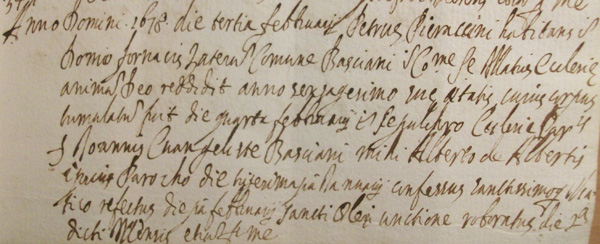 Anno Domini 1678 die tertia februarij Petrus Pieraccini habitans in
Domo fornacis Comune Basciani in Co Matris Ecclesie
animam Deo reddidit anno sexagesimo sue etatis cuius corpus
tumulatum fuit die quarta februarij in sepulchro Ecclesie
S Joannis Basciani mihi Alberto de Albertis
Parocho die Januarij confessus sanctissimoq Via
tico refectus die februarij Sancti Olei unctione roboratus die
dicti Mensis me